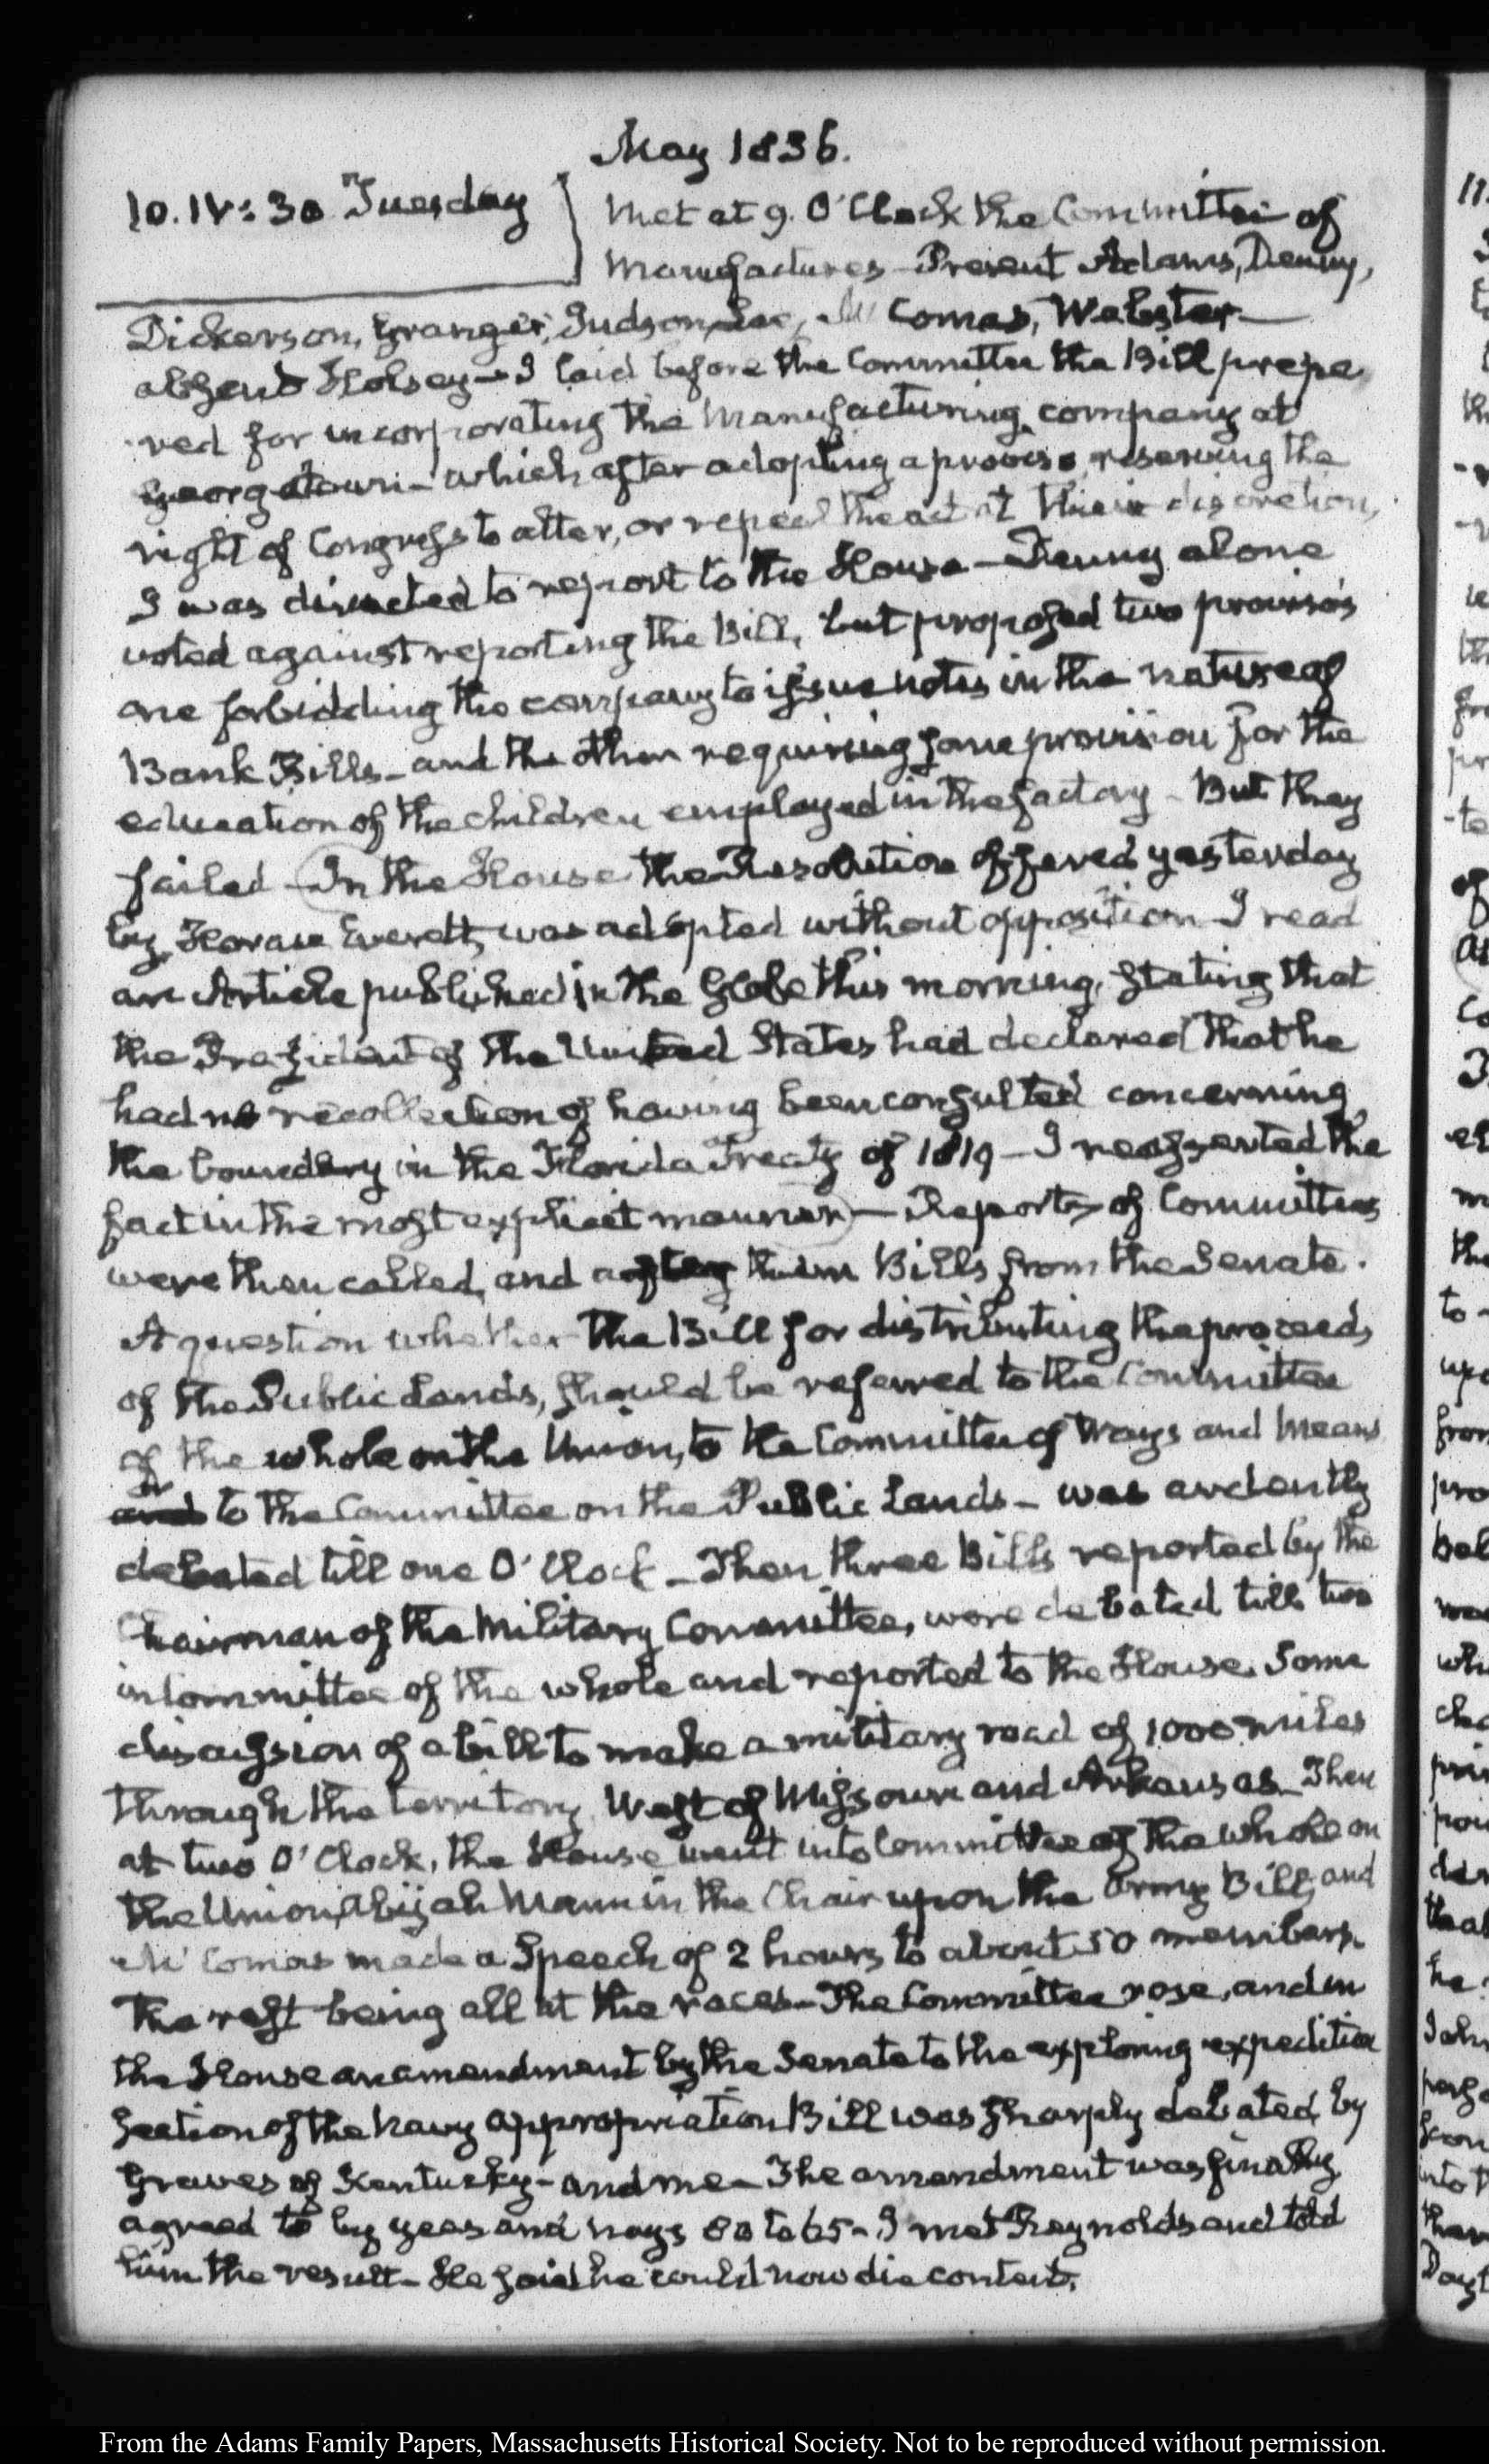 May 1836.
10. IV: 30 Tuesday
Met at 9. O'Clock the Committee of
Manufactures — Present Adams, Denny,
Dickerson, Granger, Judson, Lee, Mc Comas, Webster —
absent Halsey — I laid before the Committee the Bill prepa
red for incorporating the Manufacturing company at
Georgetown — which after adopting a proviso, reserving the
right of Congress to alter, or repeal the act at their discretion,
I was directed to report to the House — Denny alone
voted against reporting the Bill, but proposed two proviso's
one forbidding the company to issue notes in the nature of
Bank Bills — and the other requiring some provision for the
education of the children employed in the factory — But they
failed — In the House the Resolution offered yesterday
by Horace Everett, was adopted without opposition — I read
an Article published in the Globe this morning, stating that
the President of the United States had declared that he
had no recollection of having been consulted concerning
the boundary in the Florida Treaty of 1819 — I reasserted the
fact in the most explicit manner — Reports of Committees
were then called, and after them Bills from the Senate.
A question whether the Bill for distributing the proceeds
of the Public Lands, should be referred to the Committee
of the whole on the Union, to the Committee of Ways and Means
or
and to the Committee on the Public Lands — was ardently
debated till one O'Clock — Then three Bills reported by the
Chairman of the Military Committee, were debated till two
in Committee of the whole and reported to the House. Some
discussion of a bill to make a military road of 1000 miles
through the territory West of Missouri and Arkansas — Then
at two O'Clock, the House went into Committee of the whole on
the Union, Abijah Mann in the Chair upon the Army Bill, and
Mc Comas made a Speech of 2 hours to about 50 members.
The rest being all at the races — The Committee rose, and in
the House an amendment by the Senate to the exploring expedition
section of the Navy appropriation Bill was sharply debated, by
Graves of Kentucky — and me — The amendment was finally
agreed to by yeas and nays 80 to 65 — I met Reynolds and told
him the result — He said he could now die content.
From the Adams Family Papers, Massachusetts Historical Society. Not to be reproduced without permission.